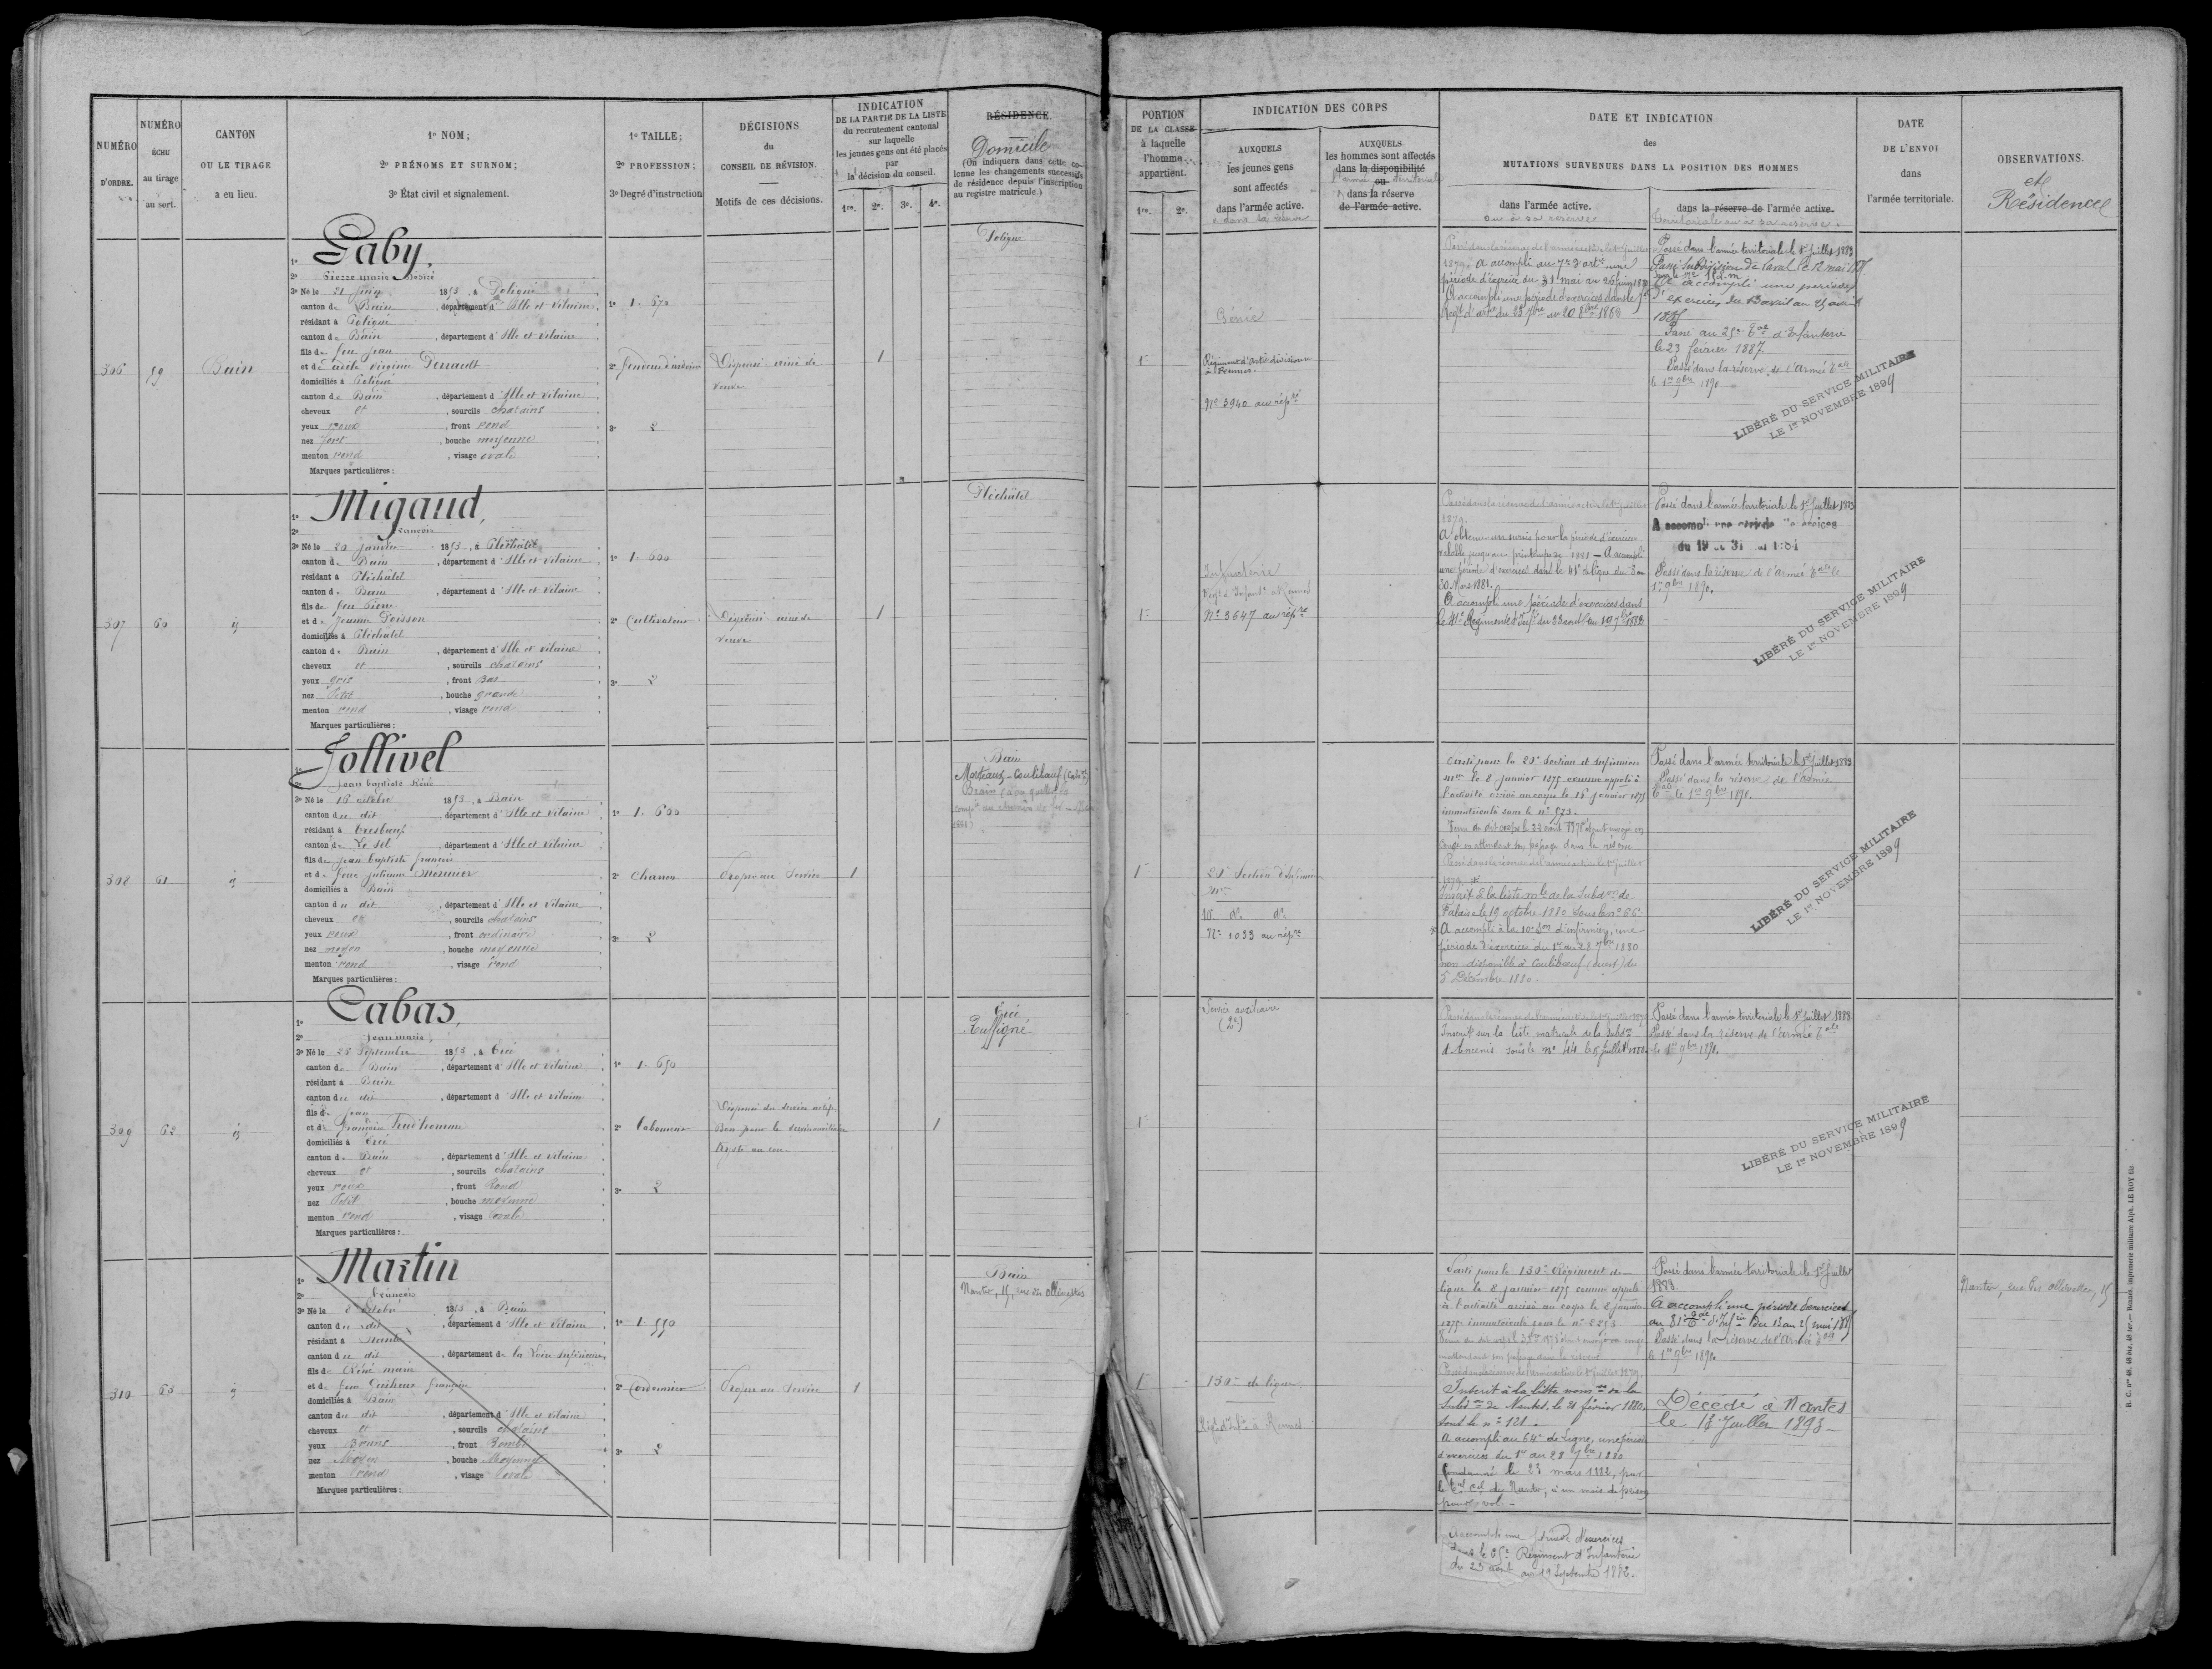 NUMÉRO
D'ORDRE.
NUMÉRO
ÉCHU
au tirage
au sort.
CANTON
OU LE TIRAGE
a eu lieu.
1º NOM;
2º PRÉNOMS ET SURNOM;
3º État civil et signalement.
1º TAILLE;
2º PROFESSION;
3º Degré d'instruction
DÉCISIONS
du
CONSEIL DE RÉVISION.
Motifs de ces décisions.
INDICATION
DE LA PARTIE DE LA LISTE
du recrutement cantonal
sur laquelle
les jeunes gens ont été placés
par
la décision du conseil.
1re. 2e. 3e. 4e.
RÉSIDENCE.
Domicile
(On indiquera dans cette co-
lonne les changements successifs
de résidence depuis l'inscription
au registre matricule.)
PORTION
DE LA CLASSE
à laquelle
l'homme
appartient.
1re. 2e.
INDICATION DES CORPS
AUXQUELS
les jeunes gens
sont affectés
dans l'armée active.
AUXQUELS
les hommes sont affectés
dans la disponibilité
ou
dans la réserve
de l'armée active.
DATE ET INDICATION
des
MUTATIONS SURVENUES DANS LA POSITION DES HOMMES
dans l'armée active.
ou à sa réserve
dans la réserve de l'armée active.
territoriale ou à sa réserve.
DATE
DE L'ENVOI
dans
l'armée territoriale.
OBSERVATIONS.
et
Résidence
306 59 Bain
1º Gaby,
2º Pierre marie
3º Né le 21 juin 1853, à Poligné
canton de Bain, département d'Ille et Vilaine
résidant à Poligné
canton de Bain, département d'Ille et Vilaine
fils de feu Jean
et de
domiciliés à Poligné
canton de Bain, département d'Ille et Vilaine
cheveux et, sourcils chatains
yeux roux, front rond
nez fort, bouche moyenne
menton rond, visage ovale
Marques particulières:
1º 1. 670
2º fendeur d'ardoise
3º 2
Dispensé ainé de
veuve
1
Poligné
1
Génie
Régiment d'art divisionre
à Rennes.
Nº 3940 au rép
Passé dans la réserve de l'armée active le 1er juillet
1879. A accompli au 7e d'art une
période d'exercice du 31 mai au 26 juin
A accompli une période d'exercices dans le
Regt d'artie du 23 7bre au 20 8bre 1880
Passé dans l'armée territoriale le 1er Juillet 1883
Passé Subdivision de Laval le 12 mai
A accompli une période
d'exercices du 13 avril au 25 avril
1885
Passé au 25e Bat d'Infanterie
le 23 février 1887.
Passé dans la réserve de l'Armée tale
le 1er 9bre 1890
LIBÉRÉ DU SERVICE MILITAIRE
LE 1er NOVEMBRE 1899
307 60 id
1º Migaud,
2º François
3º Né le 20 janvier 1853, à Pléchâtel
canton de Bain, département d'Ille et Vilaine
résidant à Pléchâtel
canton de Bain, département d'Ille et Vilaine
fils de feu Pierre
et de Jeanne Poisson
domiciliés à Pléchâtel
canton de Bain, département d'Ille et Vilaine
cheveux et, sourcils chatains
yeux gris, front Bas
nez Petit, bouche grande
menton rond, visage rond
Marques particulières:
1º 1. 600
2º Cultivateur
3º 2
Dispensé ainé de
veuve
1
Pléchâtel
1
Infanterie
Regt d'Infanie à Rennes
Nº 3647 au répre
Passé dans la réserve de l'armée active le 1er juillet
1879.
A obtenu un sursis pour la période d'exercices
valable jusqu'au printemps de 1881 — A accompli
une période d'exercices dans le 41e de ligne du 3 au
30 Mars 1881.
A accompli une période d'exercices dans
le 41e Régiment d'Infie du 23 août au 19 7bre 1882
Passé dans l'armée territoriale le 1er Juillet 1883
A accompli une période d'exercices
du 19 au 31 mai 1884
Passé dans la réserve de l'armée tale le
1er 9bre 1890.
LIBÉRÉ DU SERVICE MILITAIRE
LE 1er NOVEMBRE 1899
308 61 id
1º Jollivel
2º Jean baptiste René
3º Né le 16 octobre 1853, à Bain
canton du dit, département d'Ille et Vilaine
résidant à Tresboeuf
canton de Le Sel, département d'Ille et Vilaine
fils de Jean baptiste françois
et de feue julienne Monnier
domiciliés à Bain
canton du dit, département d'Ille et Vilaine
cheveux et, sourcils chatains
yeux roux, front ordinaire
nez moyen, bouche moyenne
menton rond, visage rond
Marques particulières:
1º 1. 600
2º Charron
3º 2
Propre au Service
1
Bain
Morteaux-Coulibœuf (Calvos)
1
Section d'Infirmiers
Mre
10 do do
Nº 1033 au répre
Parti pour la Section d'infirmiers
mre le 8 janvier 1875 comme appelé à
l'activité arrivé au corps le 15 janvier 1875
immatriculé sous le nº 573.
Passé dans la réserve de l'armée active le 1er juillet
1879. *
Inscrit à la liste mle de la Subdon de
Falaise le 19 octobre 1880 sous le nº 66
* A accompli à la 10e Son d'infirmiers, une
période d'exercices du 1er au 28 7bre 1880
non-disponible à Coulibœuf (ouest) du
5 Décembre 1880
Passé dans l'armée territoriale le 1er Juillet 1883
Passé dans la réserve de l'armée
tale le 1er 9bre 1890.
LIBÉRÉ DU SERVICE MILITAIRE
LE 1er NOVEMBRE 1899
309 62 id
1º Cabas,
2º Jean marie,
3º Né le 25 Septembre 1853, à Ercé
canton de Bain, département d'Ille et Vilaine
résidant à Bain
canton du dit, département d'Ille et Vilaine
fils de Jean
et de françoise Prud'homme
domiciliés à Ercé
canton de Bain, département d'Ille et Vilaine
cheveux et, sourcils chatains
yeux roux, front Rond
nez Petit, bouche moyenne
menton rond, visage ovale
Marques particulières:
1º 1. 650
2º Laboureur
3º 2
Dispensé du service actif
Bon pour le service auxiliaire
Kyste au cou
1
Ercé
Ruffigné
1
Service auxiliaire
(2e)
Passé dans la réserve de l'armée active le 1er juillet 1879
Inscrit sur la liste matricule de la Subdon
d'Ancenis sous le nº 44 le 8 juillet 1880.
Passé dans l'armée territoriale le 1er Juillet 1883
Passé dans la réserve de l'armée tale
le 1er 9bre 1890.
LIBÉRÉ DU SERVICE MILITAIRE
LE 1er NOVEMBRE 1899
310 63 id
1º Martin
2º François
3º Né le 8 octobre 1853, à Bain
canton du dit, département d'Ille et Vilaine
résidant à Nantes
canton du dit, département de la Loire inférieure
fils de René marie
et de feue françoise
domiciliés à Bain
canton du dit, département d'Ille et Vilaine
cheveux et, sourcils chatains
yeux Bruns, front Bombé
nez Moyen, bouche Moyenne
menton rond, visage ovale
Marques particulières:
1º 1. 550
2º Cordonnier
3º 2
Propre au Service
1
Bain
Nantes, 15, rue des Olivettes
1
130e de ligne
Regt d'Infie à Rennes
Parti pour le 130e Régiment de
ligne le 8 janvier 1875 comme appelé
à l'activité arrivé au corps le 8 janvier
1875 immatriculé sous le nº 2253
Passé dans la réserve de l'armée active le 1er juillet 1879.
Inscrit à la liste
Subdon de Nantes, le 21 février 1880,
sous le nº 121.
A accompli au 64e de Ligne, une période
d'exercices du 1er au 28 7bre 1880
Condamné le 23 mars 1882, par
le Tral Cel de Nantes, à un mois de prison
pour vol. —
Accompli une période d'exercices
dans le 65e Régiment d'Infanterie
du 23 août au 19 Septembre 1882.
Passé dans l'armée territoriale le 1er Juillet
1883.
A accompli une période d'exercices
au 81e Tal d'Infie du 13 au 25 mai 1885
Passé dans la réserve de l'Armée tale
le 1er 9bre 1890
Décédé à Nantes
le 13 Juillet 1893 —
Nantes, rue des Olivettes, 15
R. C. nos 48, 48 bis, 48 ter. — Rennes, imprimerie militaire Alph. LE ROY fils